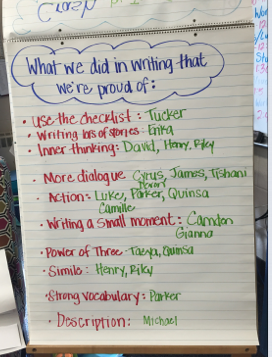 Crazy
What we did in writing that
we're proud of:
• Use the checklist: Tucker
• Writing lots of stories: Erika
• Inner thinking: David, Henry, Riley
• More dialogue Cyrus, James, Tishani
• Action: Luke, Parker, Quinsa
Camille
• Writing a small moment: Camden
Gianna
• Power of Three: Taeya, Quinsa
• Simile: Henry, Riley
• Strong vocabulary: Parker
• Description: Michael